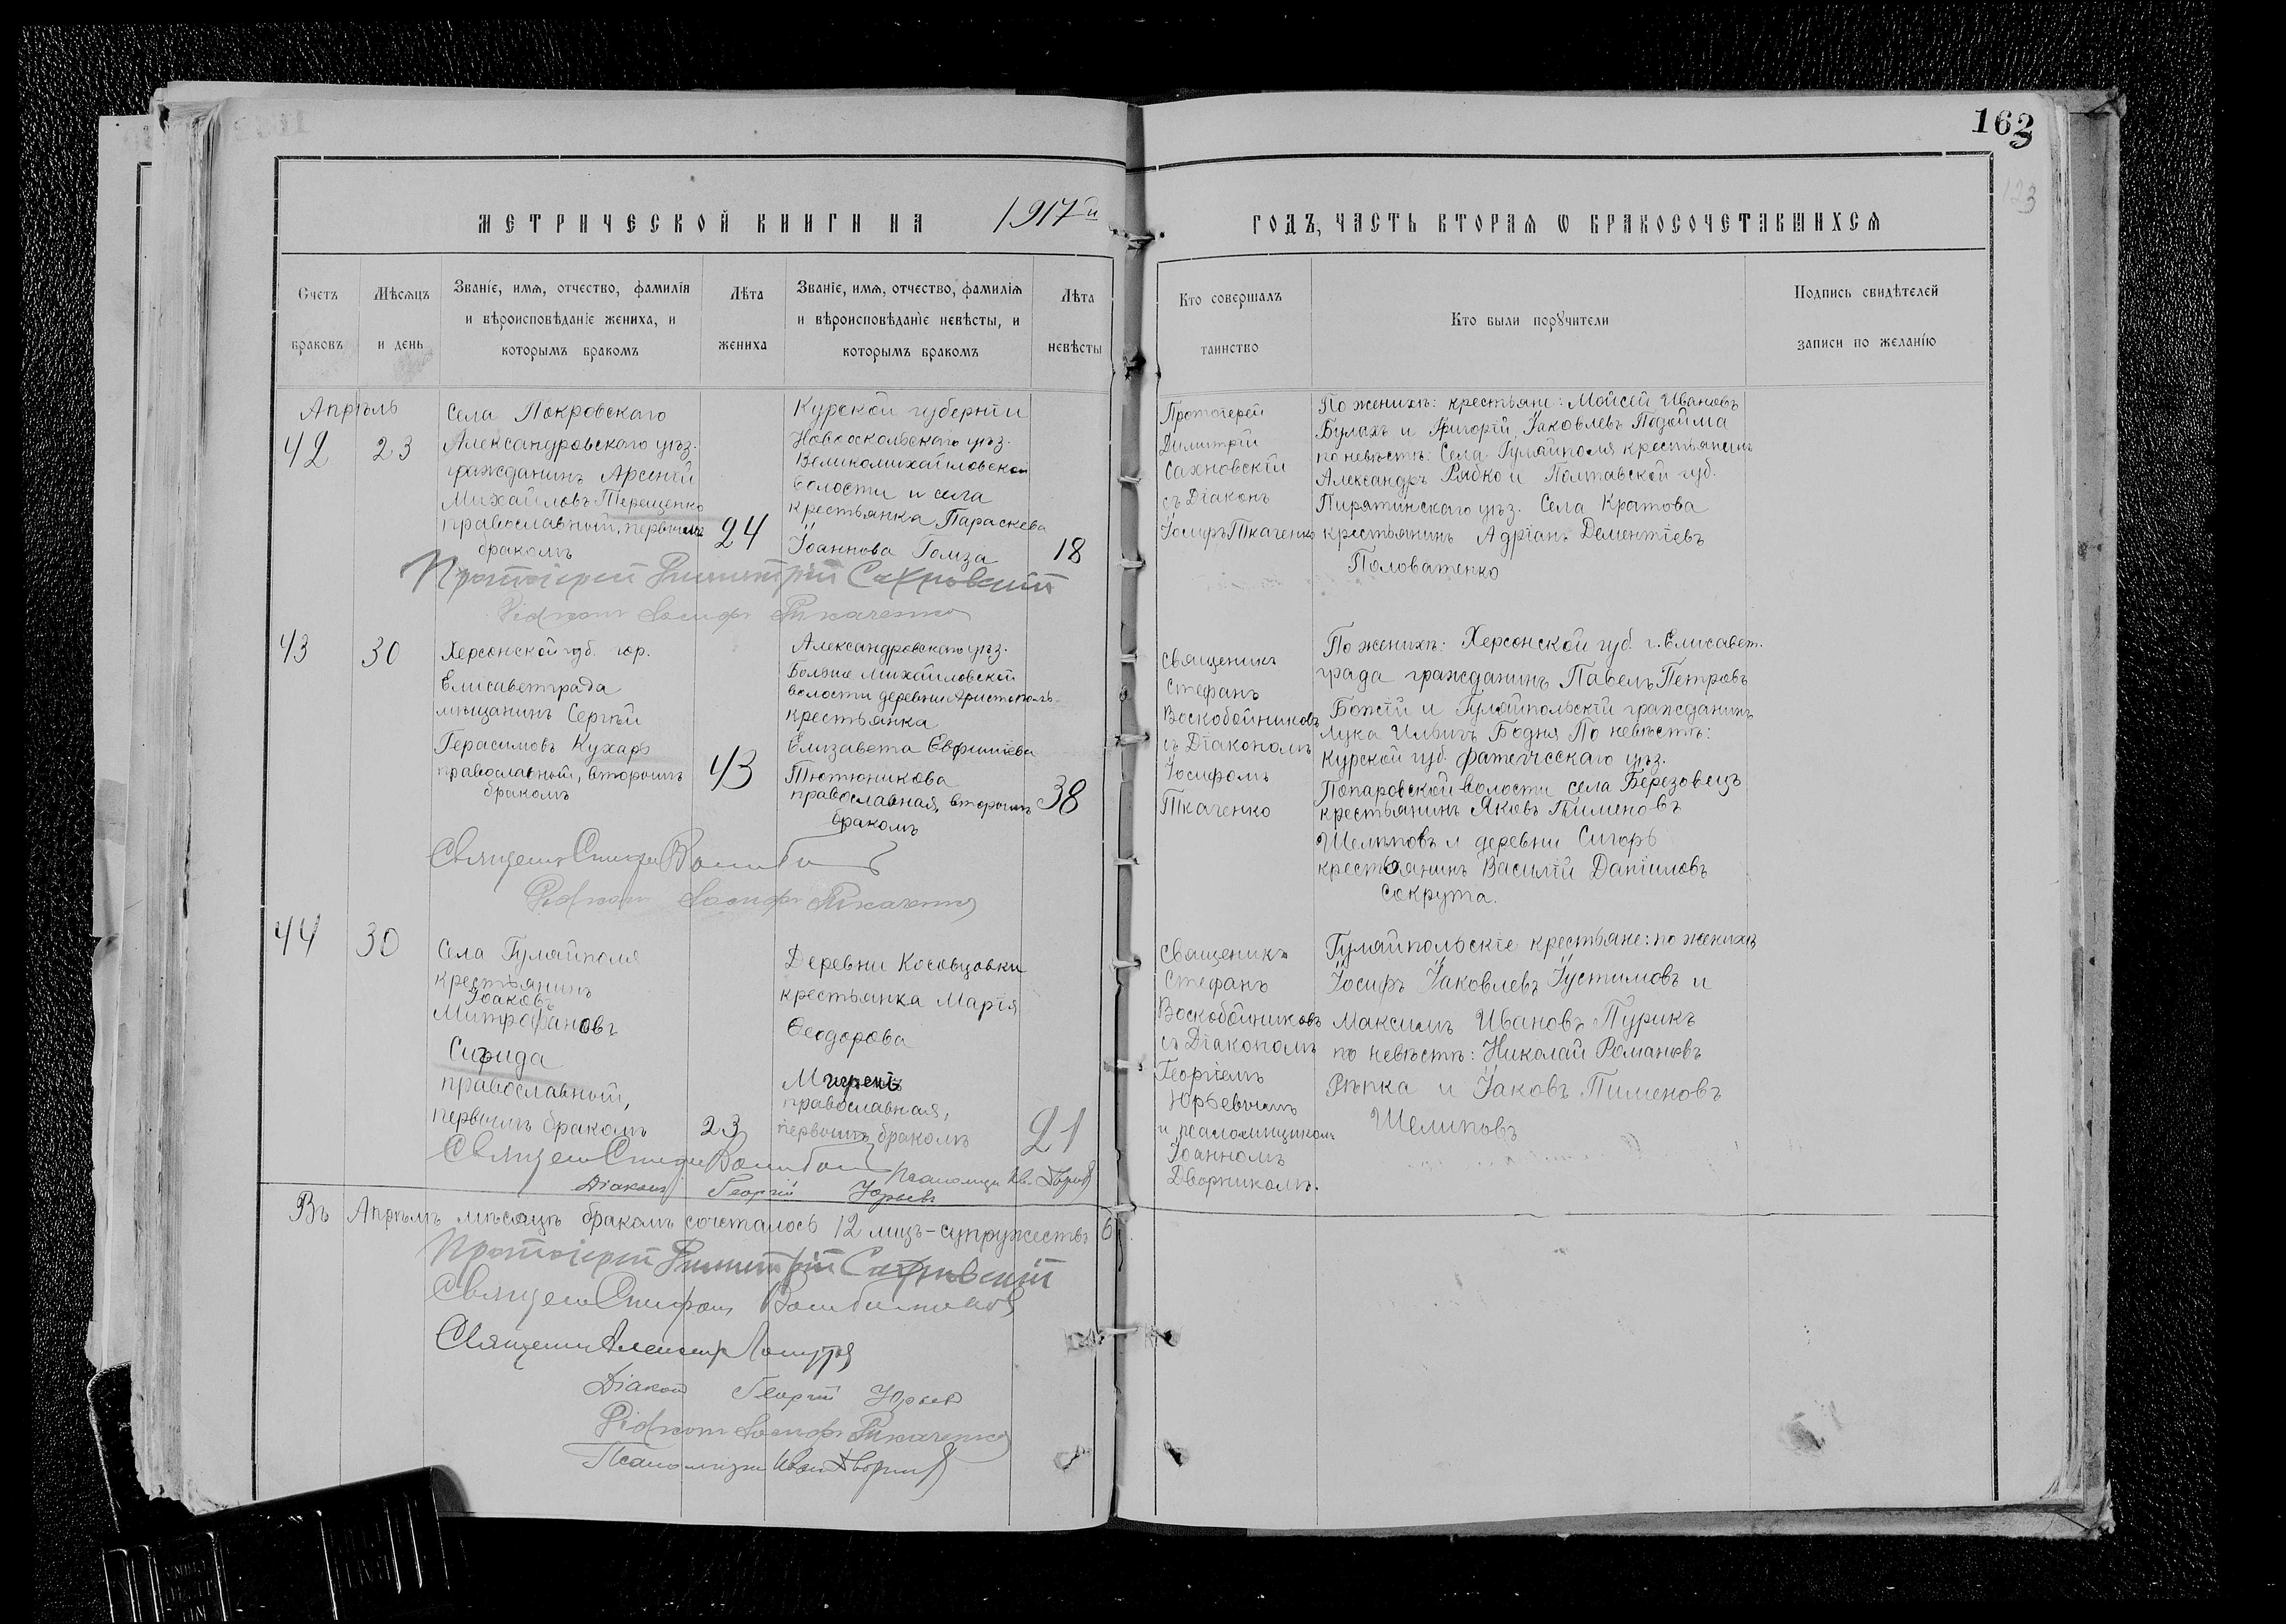 162
3
123
МЕТРИЧЕСКОЙ КНИГИ НА 1917й
ГОДЪ, ЧАСТЬ ВТОРАѦ Ѡ БРАКОСОЧЕТАВШИХСѦ
Счетъ браковъ
Мѣсѧцъ и день
Званіе, имѧ, отчество, фамилія
и вѣроисповѣданіе жениха, и
которымъ бракомъ
Лѣта жениха
Званіе, имѧ, отчество, фамиліѧ
и вѣроисповѣданіе невѣсты, и
которымъ бракомъ
Лѣта невѣсты
Кто совершалъ таинство
Кто были порꙋчители
Подпись свидѣтелей
записи по желанію
Апрѣль
42
23
Села Покровскаго
Александровскаго уѣз.
гражданинъ Арсеній
Михайловъ Терещенко
православный, первымъ
бракомъ
24
Курской губерніи
Новооскольскаго уѣз.
Великомихайловской
волости и села
крестьянка Параскева
Іоаннова Гомза
18
Протоіерей
Димитрій
Сахновскій
съ Діаконъ
Іосифъ Ткаченко
По женихѣ: крестьяне: Мойсей Ивановъ
Булахъ и Григорій Іаковлевъ Подойма
по невѣстѣ: Села Гуляйполя крестьянинъ
Александръ Рябко и Полтавской губ.
Пирятинскаго уѣз. Села Кротова
крестьянинъ Адріанъ Дементіевъ
Половатенко
Протоіерей Димитрій Сахновскій
Діаконъ Іосифъ Ткаченко
43
30
Херсонской губ. гор.
Елисаветграда
мѣщанинъ Сергѣй
Герасимовъ Кухарь
православный, вторымъ
бракомъ
43
Александровскаго уѣз.
Больше Михайловской
волости деревни Аристополь
крестьянка
Елизавета Евфиміева
Тютюникова
православная вторымъ
бракомъ
38
Священикъ
Стефанъ
Воскобойниковъ
съ Діакономъ
Іосифомъ
Ткаченко
По женихѣ: Херсонской губ. г. Елисавет.
града гражданинъ Павелъ Петровъ
Божій и Гуляйпольскій гражданинъ
Лука Ильичъ Бодня По невѣстѣ:
Курской губ. Фатежсскаго уѣз.
Попаровской волости села Березовецъ
крестьянинъ Яковъ Пименовъ
Шелиповъ и деревни Сигоръ
крестьянинъ Василій Даніиловъ
Сокрута.
Діаконъ Іосифъ Ткаченко
44
30
Села Гуляйполя
крестьянинъ
Іоаковъ
Митрофановъ
православный,
первымъ бракомъ
23
Деревни Косовцовки
крестьянка Марія
Ѳеодорова
православная,
первымъ бракомъ
21
Священикъ
Стефанъ
Воскобойниковъ
съ Діакономъ
Георгіемъ
Юрьевымъ
и псаломщикомъ
Іоанномъ
Дворникомъ.
Гуляйпольскіе крестьяне: по женихѣ
Іосифъ Іаковлевъ Іустимовъ и
Максимъ Ивановъ Пурикъ
по невѣстѣ: Николай Романовъ
Рѣпка и Іаковъ Пименовъ
Шелиповъ
Діаконъ Георгій Юрьевъ
Въ Апрѣлѣ мѣсяцѣ бракомъ сочеталось 12 лицъ-супружествъ 6.
Протоіерей Димитрій Сахновскій
Діаконъ Георгій Юрьевъ
Діаконъ Іосифъ Ткаченко